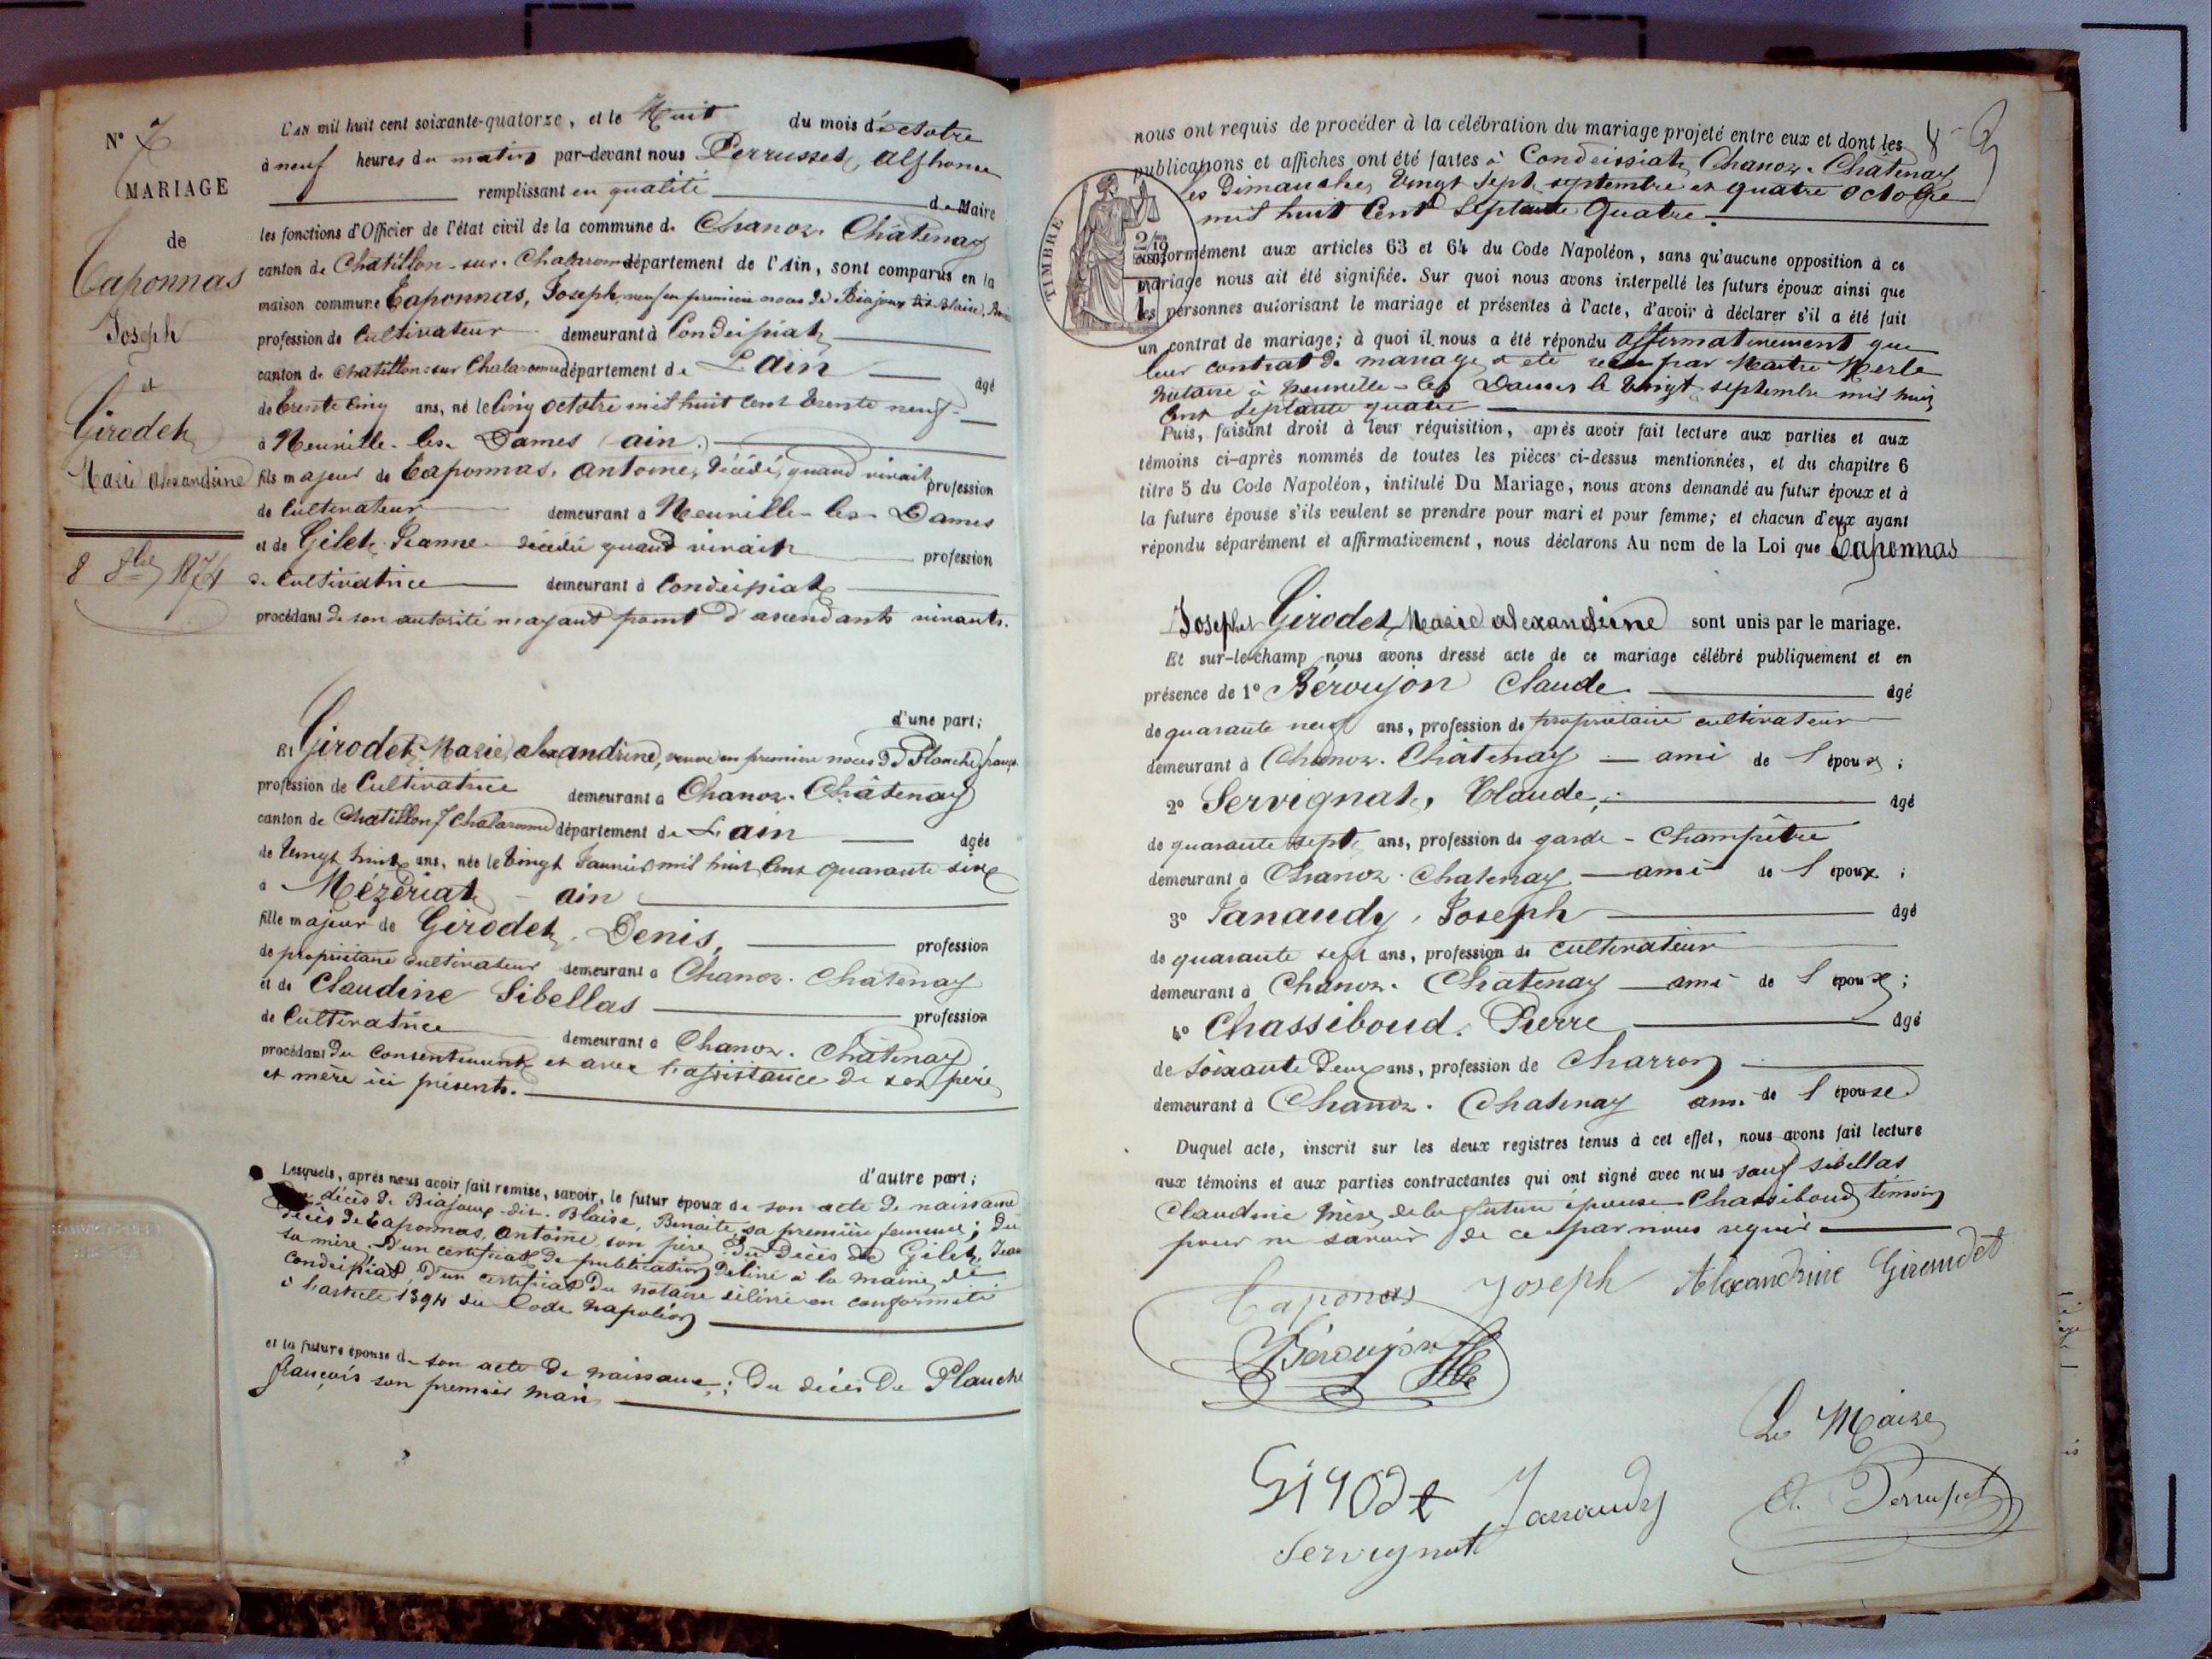 N° 7
MARIAGE
de
Caponnas
Joseph
et
Girodet
Marie Alexandrine
8 8bre 1874
L'AN mil huit cent soixante-quatorze, et le Huit du mois d'octobre
à neuf heures du matin par-devant nous Perrusset, Alphonse
remplissant en qualité de Maire
les fonctions d'Officier de l'état civil de la commune de Chanoz-Châtenay
canton de Chatillon-sur-Chalaronne département de l'Ain, sont comparus en la
maison commune Caponnas, Joseph, veuf en première noces de Biajoux dit Blaise,
profession de Cultivateur demeurant à Condeissiat
canton de Chatillon-sur Chalaronne département de L'Ain âgé
de trente cinq ans, né le Cinq octobre mil huit cent trente neuf
à Neuville-les-Dames (ain)
fils majeur de Caponnas, Antoine, décédé, quand vivait profession
de Cultivateur demeurant à Neuville-les-Dames
et de Gilet Jeanne décédée quand vivait profession
de Cultivatrice demeurant à Condeissiat
procédant de son autorité n'ayant point d'ascendants vivants.
d'une part;
Et Girodet, Marie, Alexandrine, veuve en première noces de Planche franç.
profession de Cultivatrice demeurant à Chanoz-Châtenay
canton de Chatillon s/ Chalaronne département de L'ain âgée
de Vingt huit ans, née le Vingt Janvier mil huit Cent quarante six
à Mézériat - ain
fille majeur de Girodet, Denis, profession
de propriétaire cultivateur demeurant à Chanoz-Châtenay
et de Claudine Sibellas profession
de Cultivatrice demeurant à Chanoz-Châtenay
procédant du consentement et avec l'assistance de ses père
et mère ici présents.
d'autre part;
Lesquels, après nous avoir fait remise, savoir, le futur époux de son acte de naissance
du décès de Biajoux-dit-Blaise, Benoite, sa première femme; du
décès de Caponnas, Antoine, son père, du décès de Gilet, Jean
sa mère. D'un certificat de publication délivré à la mairie de
Condeissiat, d'un certificat du notaire délivré en conformité
à l'article 1394 du Code Napoléon
et la future épouse de son acte de naissance; du décès de Planche
françois son premier mari
8
nous ont requis de procéder à la célébration du mariage projeté entre eux et dont les
publications et affiches ont été faites à Condeissiat, Chanoz-Châtenay
les Dimanches, Vingt Sept septembre et quatre octobre
mil huit Cent Septante Quatre.
TIMBRE
conformément aux articles 63 et 64 du Code Napoléon, sans qu'aucune opposition à ce
mariage nous ait été signifiée. Sur quoi nous avons interpellé les futurs époux ainsi que
les personnes autorisant le mariage et présentes à l'acte, d'avoir à déclarer s'il a été fait
un contrat de mariage; à quoi il nous a été répondu affirmativement que
leur contrat de mariage a été reçu par Maître Merle
notaire à Neuville-les Dames le Vingt septembre mil huit
Cent Septante quatre
Puis, faisant droit à leur réquisition, après avoir fait lecture aux parties et aux
témoins ci-après nommés de toutes les pièces ci-dessus mentionnées, et du chapitre 6
titre 5 du Code Napoléon, intitulé Du Mariage, nous avons demandé au futur époux et à
la future épouse s'ils veulent se prendre pour mari et pour femme; et chacun d'eux ayant
répondu séparément et affirmativement, nous déclarons Au nom de la Loi que Caponnas
Joseph et Girodet, Marie Alexandrine sont unis par le mariage.
Et sur-le-champ nous avons dressé acte de ce mariage célébré publiquement et en
présence de 1° Béroujon Claude âgé
de quarante neuf ans, profession de propriétaire cultivateur
demeurant à Chanoz-Châtenay ami de l'époux;
2° Servignat, Claude, âgé
de quarante sept ans, profession de garde-Champêtre
demeurant à Chanoz-Chatenay ami de l'époux;
3° Janaudy, Joseph âgé
de quarante sept ans, profession de cultivateur
demeurant à Chanoz-Châtenay ami de l'épouse;
4° Chassiboud, Pierre âgé
de soixante deux ans, profession de Charron
demeurant à Chanoz-Chatenay ami de l'épouse
Duquel acte, inscrit sur les deux registres tenus à cet effet, nous avons fait lecture
aux témoins et aux parties contractantes qui ont signé avec nous sauf Sibellas
Claudine mère de la future épouse Chassiboud témoin
pour ne savoir de ce par nous requis
Caponas Joseph Alexandrine Giraudet
Béroujon
Le Maire
Girodet Janaudy A. Perrusset
Servignat